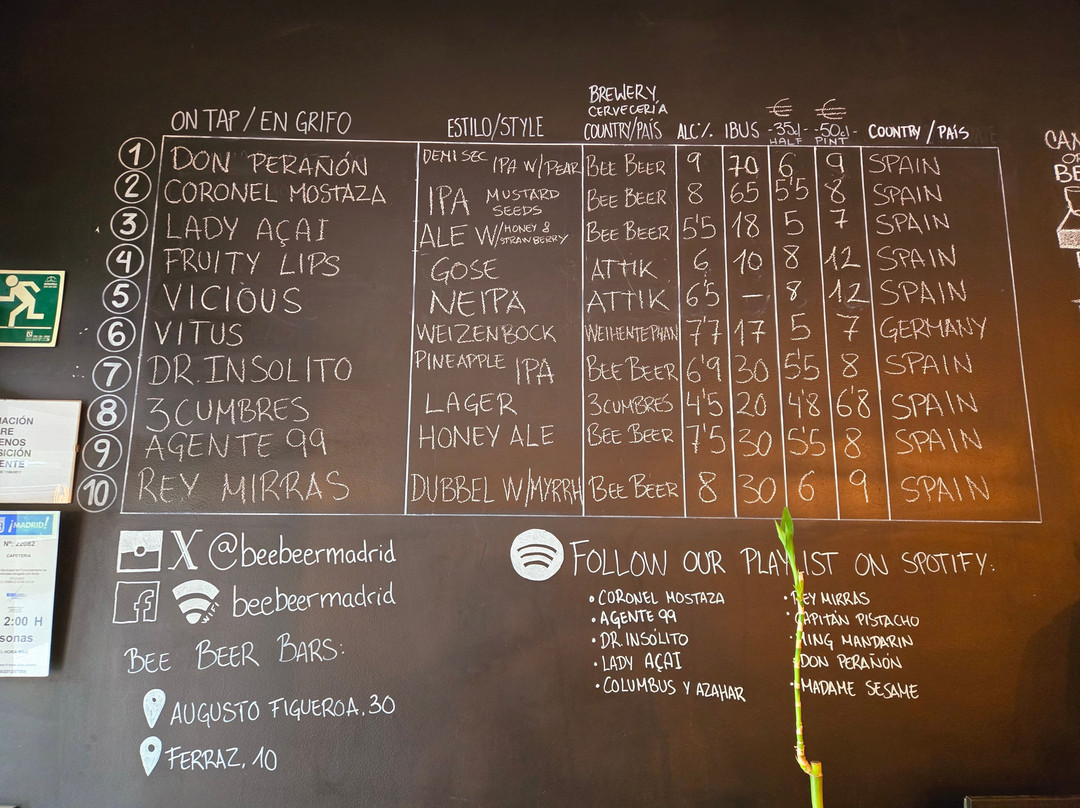 ON TAP / EN GRIFO ESTILO/STYLE BREWERY, CERVECERÍA COUNTRY/PAÍS ALC% IBUS € -35cl- HALF € -50cl- PINT COUNTRY / PAÍS
1 DON PERAÑÓN DEMI SEC IPA W/PEAR BEE BEER 9 70 6 9 SPAIN
2 CORONEL MOSTAZA IPA MUSTARD SEEDS BEE BEER 8 65 5'5 8 SPAIN
3 LADY AÇAI ALE W/HONEY & STRAWBERRY BEE BEER 5'5 18 5 7 SPAIN
4 FRUITY LIPS GOSE ATTIK 6 10 8 12 SPAIN
5 VICIOUS NEIPA ATTIK 6'5 — 8 12 SPAIN
6 VITUS WEIZENBOCK WEIHENTEPHAN 7'7 17 5 7 GERMANY
7 DR. INSOLITO PINEAPPLE IPA BEE BEER 6'9 30 5'5 8 SPAIN
8 3CUMBRES LAGER 3CUMBRES 4'5 20 4'8 6'8 SPAIN
9 AGENTE 99 HONEY ALE BEE BEER 7'5 30 5'5 8 SPAIN
10 REY MIRRAS DUBBEL W/MYRRH BEE BEER 8 30 6 9 SPAIN
X @beebeermadrid
f WIFI beebeermadrid
BEE BEER BARS:
AUGUSTO FIGUEROA, 30
FERRAZ, 10
FOLLOW OUR PLAYLIST ON SPOTIFY:
• CORONEL MOSTAZA
• AGENTE 99
• DR. INSÓLITO
• LADY AÇAÍ
• COLUMBUS Y AZAHAR
• REY MIRRAS
CAPITÁN PISTACHO
MING MANDARIN
DON PERAÑÓN
MADAME SESAME
CAN
BE
MACIÓN
RE
ENOS
SICIÓN
ENTE
¡MADRID!
Nº: 22082
CAFETERIA
2:00 H
sonas